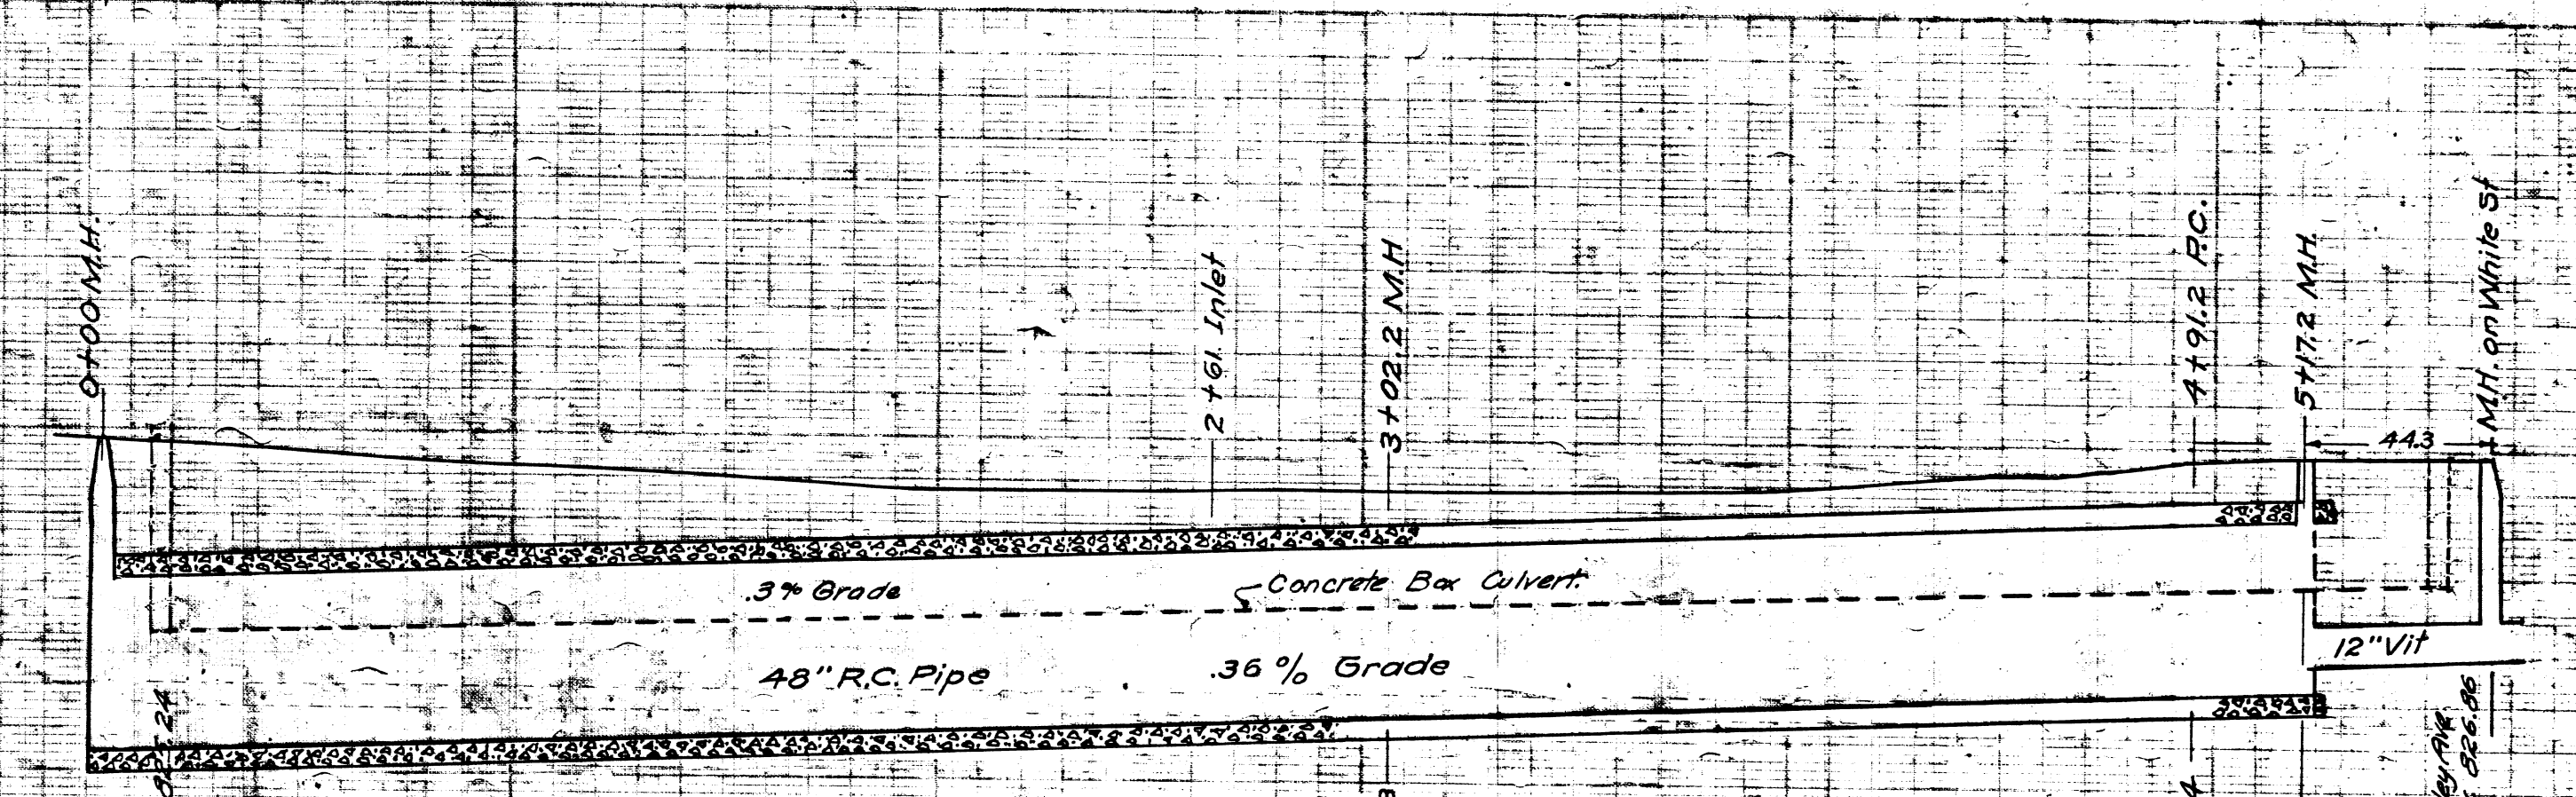 0+00 M.H.
2+61. Inlet
3+02.2 M.H
4+91.2 P.C.
5+17.2 M.H.
M.H. on White St
44.3
.3% Grade
Concrete Box Culvert.
48" R.C. Pipe
.36 % Grade
12" Vit
Ave.
826.86